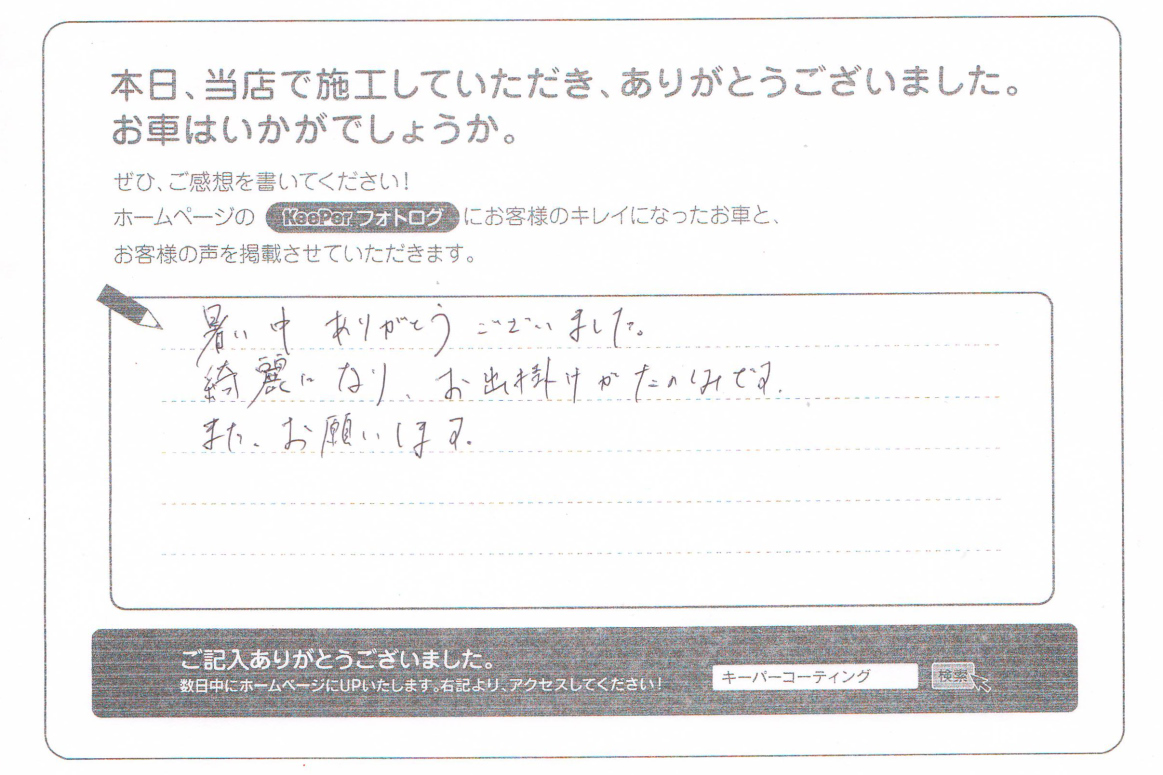 本日、当店で施工していただき、ありがとうございました。
お車はいかがでしょうか。
ぜひ、ご感想を書いてください!
ホームページの KeePer フォトログ にお客様のキレイになったお車と、
お客様の声を掲載させていただきます。
暑い中 ありがとう ございました。
綺麗になり、お出掛けがたのしみです.
また、お願いします.
ご記入ありがとうございました。
数日中にホームページにUPいたします。右記より、アクセスしてください!
キーパーコーティング 検索